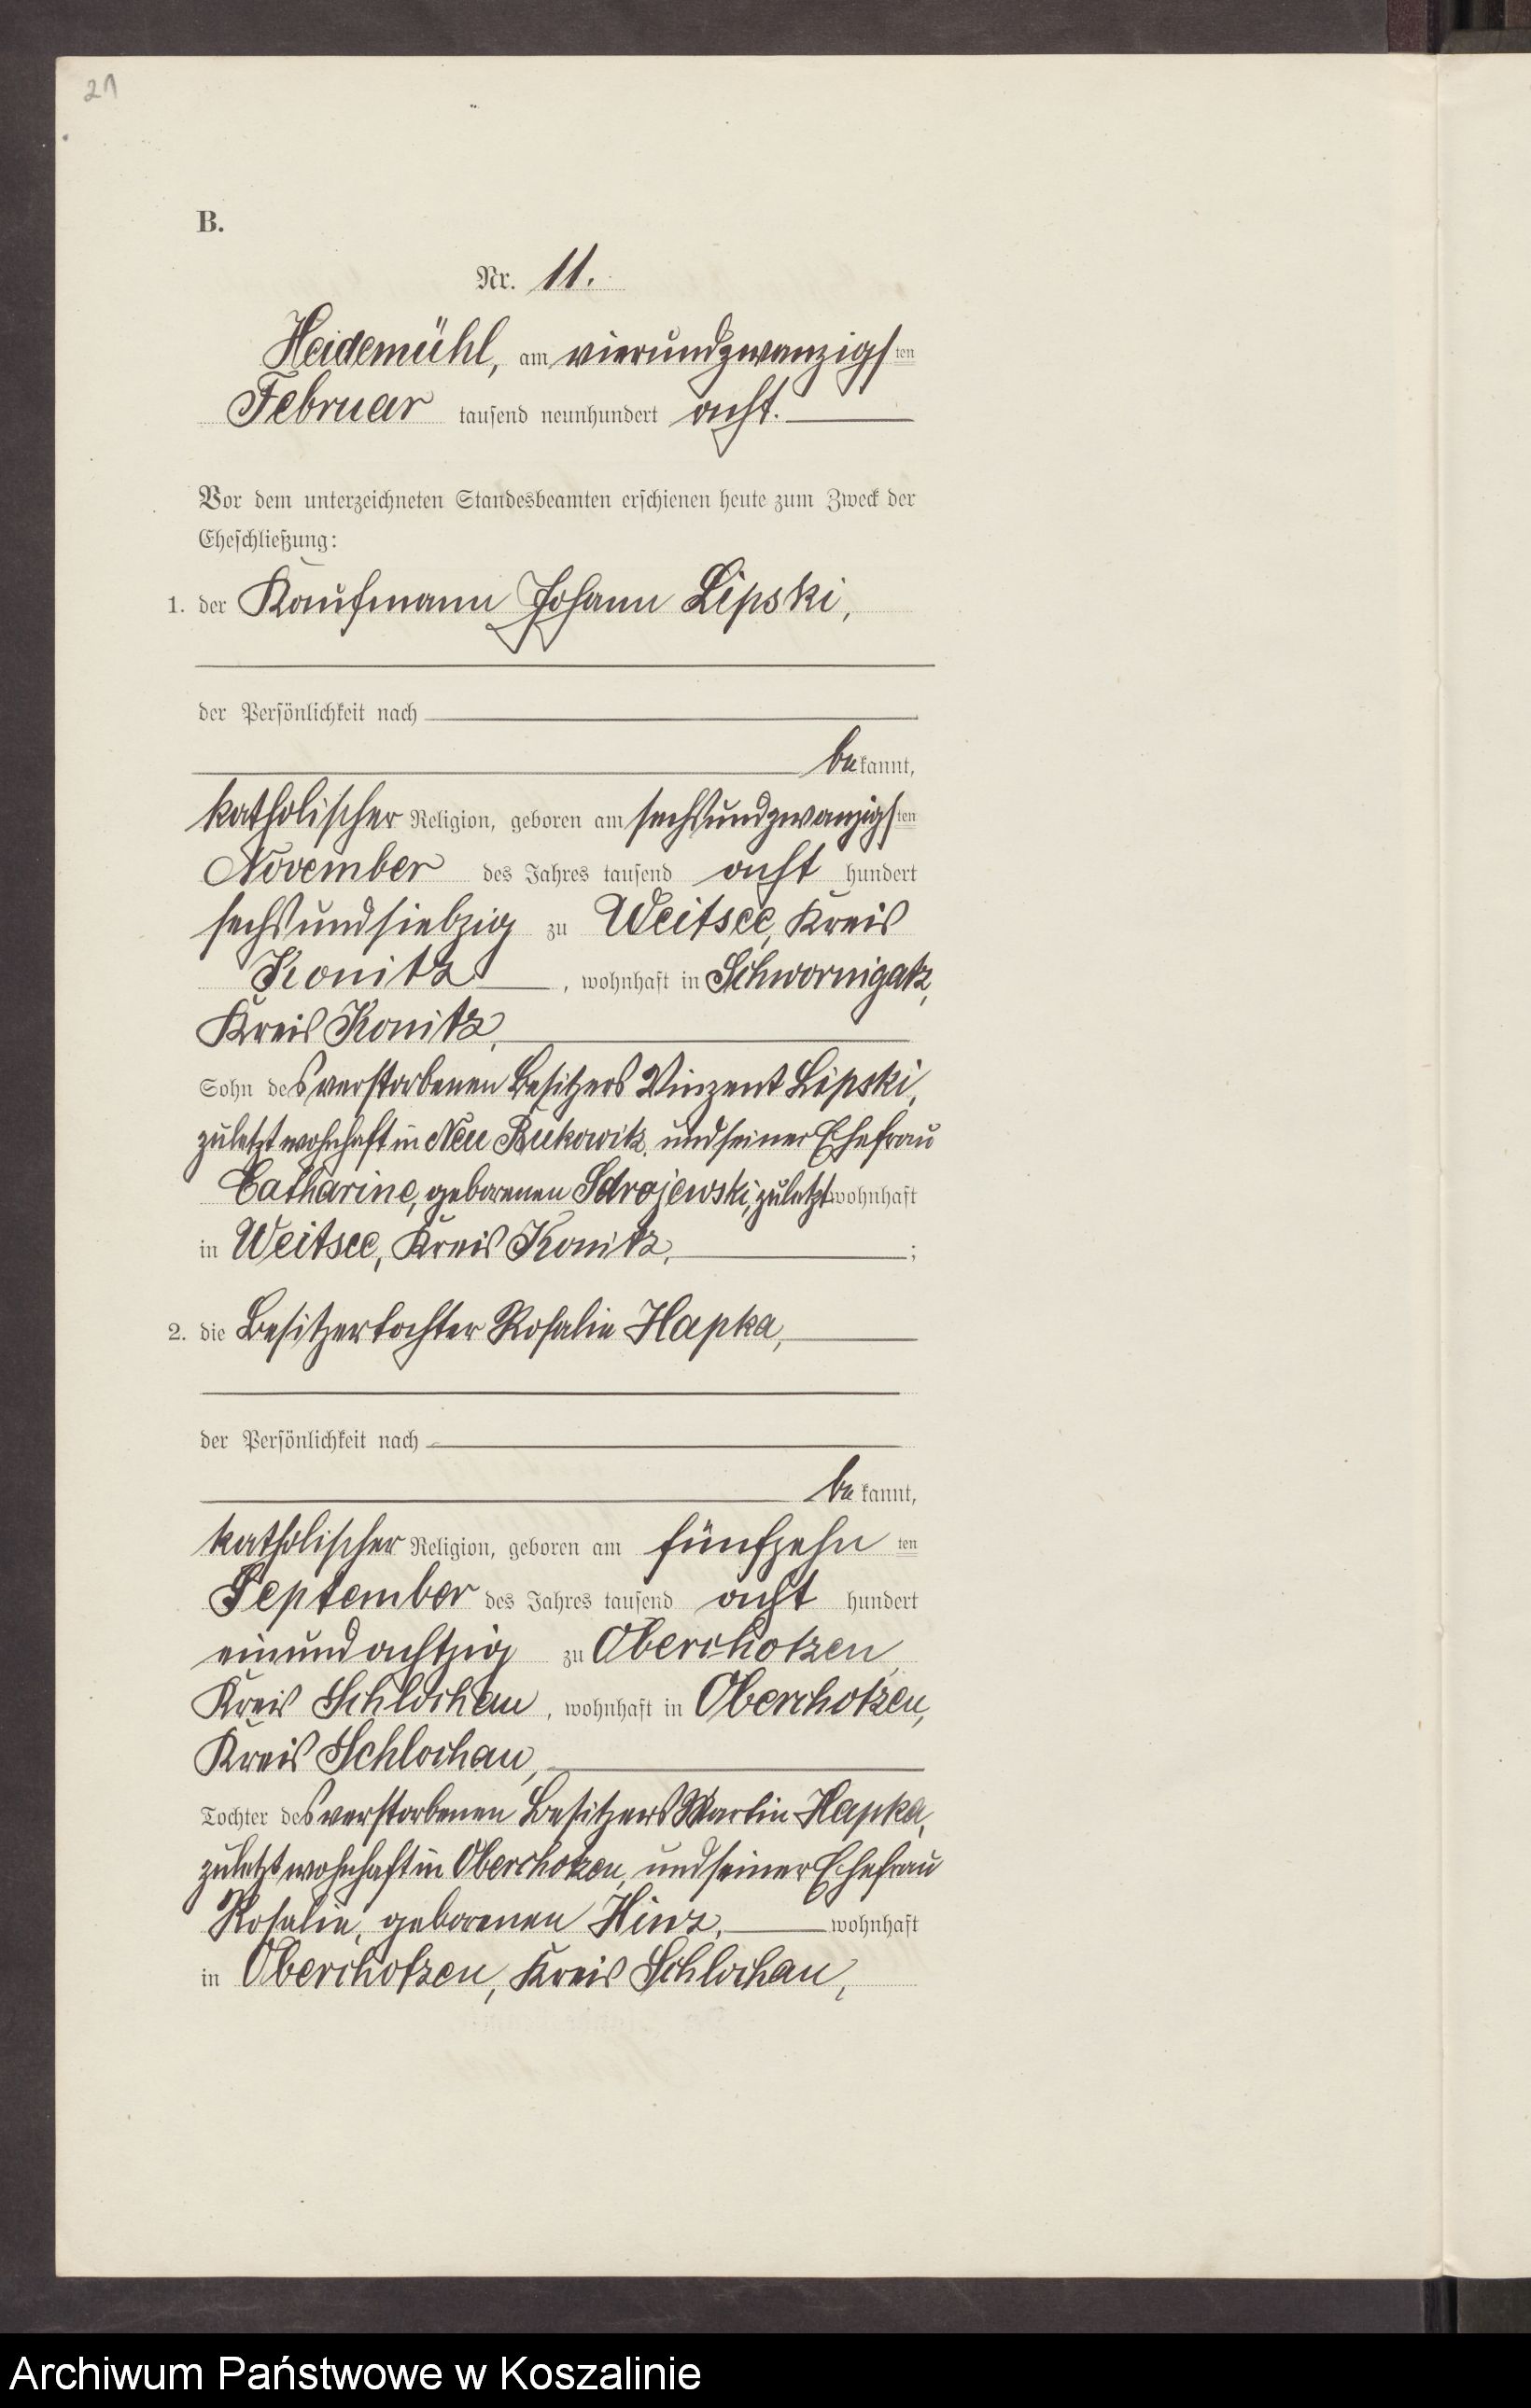 21
B.
Nr. 11.
Heidemühl, am vierundzwanzigsten
Februar tausend neunhundert acht.
Vor dem unterzeichneten Standesbeamten erschienen heute zum Zweck der
Eheschließung:
1. der Kaufmann Johann Lipski,
der Persönlichkeit nach
bekannt,
katholischer Religion, geboren am sechsundzwanzigsten
November des Jahres tausend acht hundert
sechsundsiebzig zu Weitsee, Kreis
Konitz, wohnhaft in Schwornigatz,
Kreis Konitz,
Sohn des verstorbenen Besitzers Vinzent Lipski,
zuletzt wohnhaft in Neu Bukowitz, und seiner Ehefrau
Catharine, geborenen Sdrojewski, zuletzt wohnhaft
in Weitsee, Kreis Konitz, ;
2. die Besitzertochter Rosalie Hapka,
der Persönlichkeit nach
bekannt,
katholischer Religion, geboren am fünfzehnten
September des Jahres tausend acht hundert
einundachtzig zu Oberchotzen,
Kreis Schlochau, wohnhaft in Oberchotzen,
Kreis Schlochau,
Tochter des verstorbenen Besitzers Martin Hapka,
zuletzt wohnhaft in Oberchotzen, und seiner Ehefrau
Rosalie, geborenen Hinz, wohnhaft
in Oberchotzen, Kreis Schlochau,
Archiwum Państwowe w Koszalinie